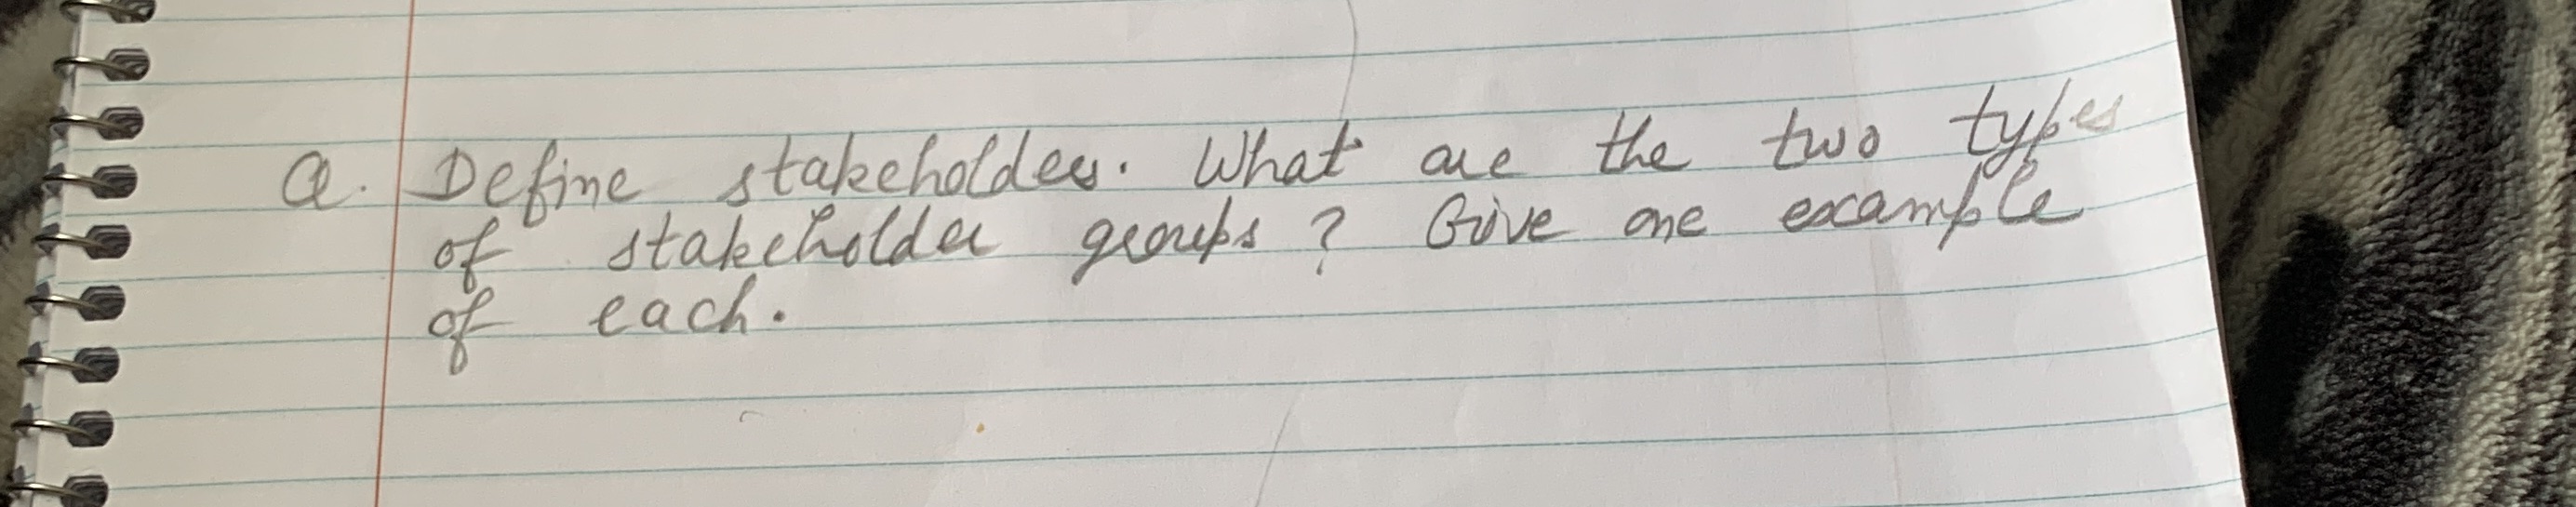 Q. Define stakeholder. What are the two types
of stakeholder groups? Give one example
of each.